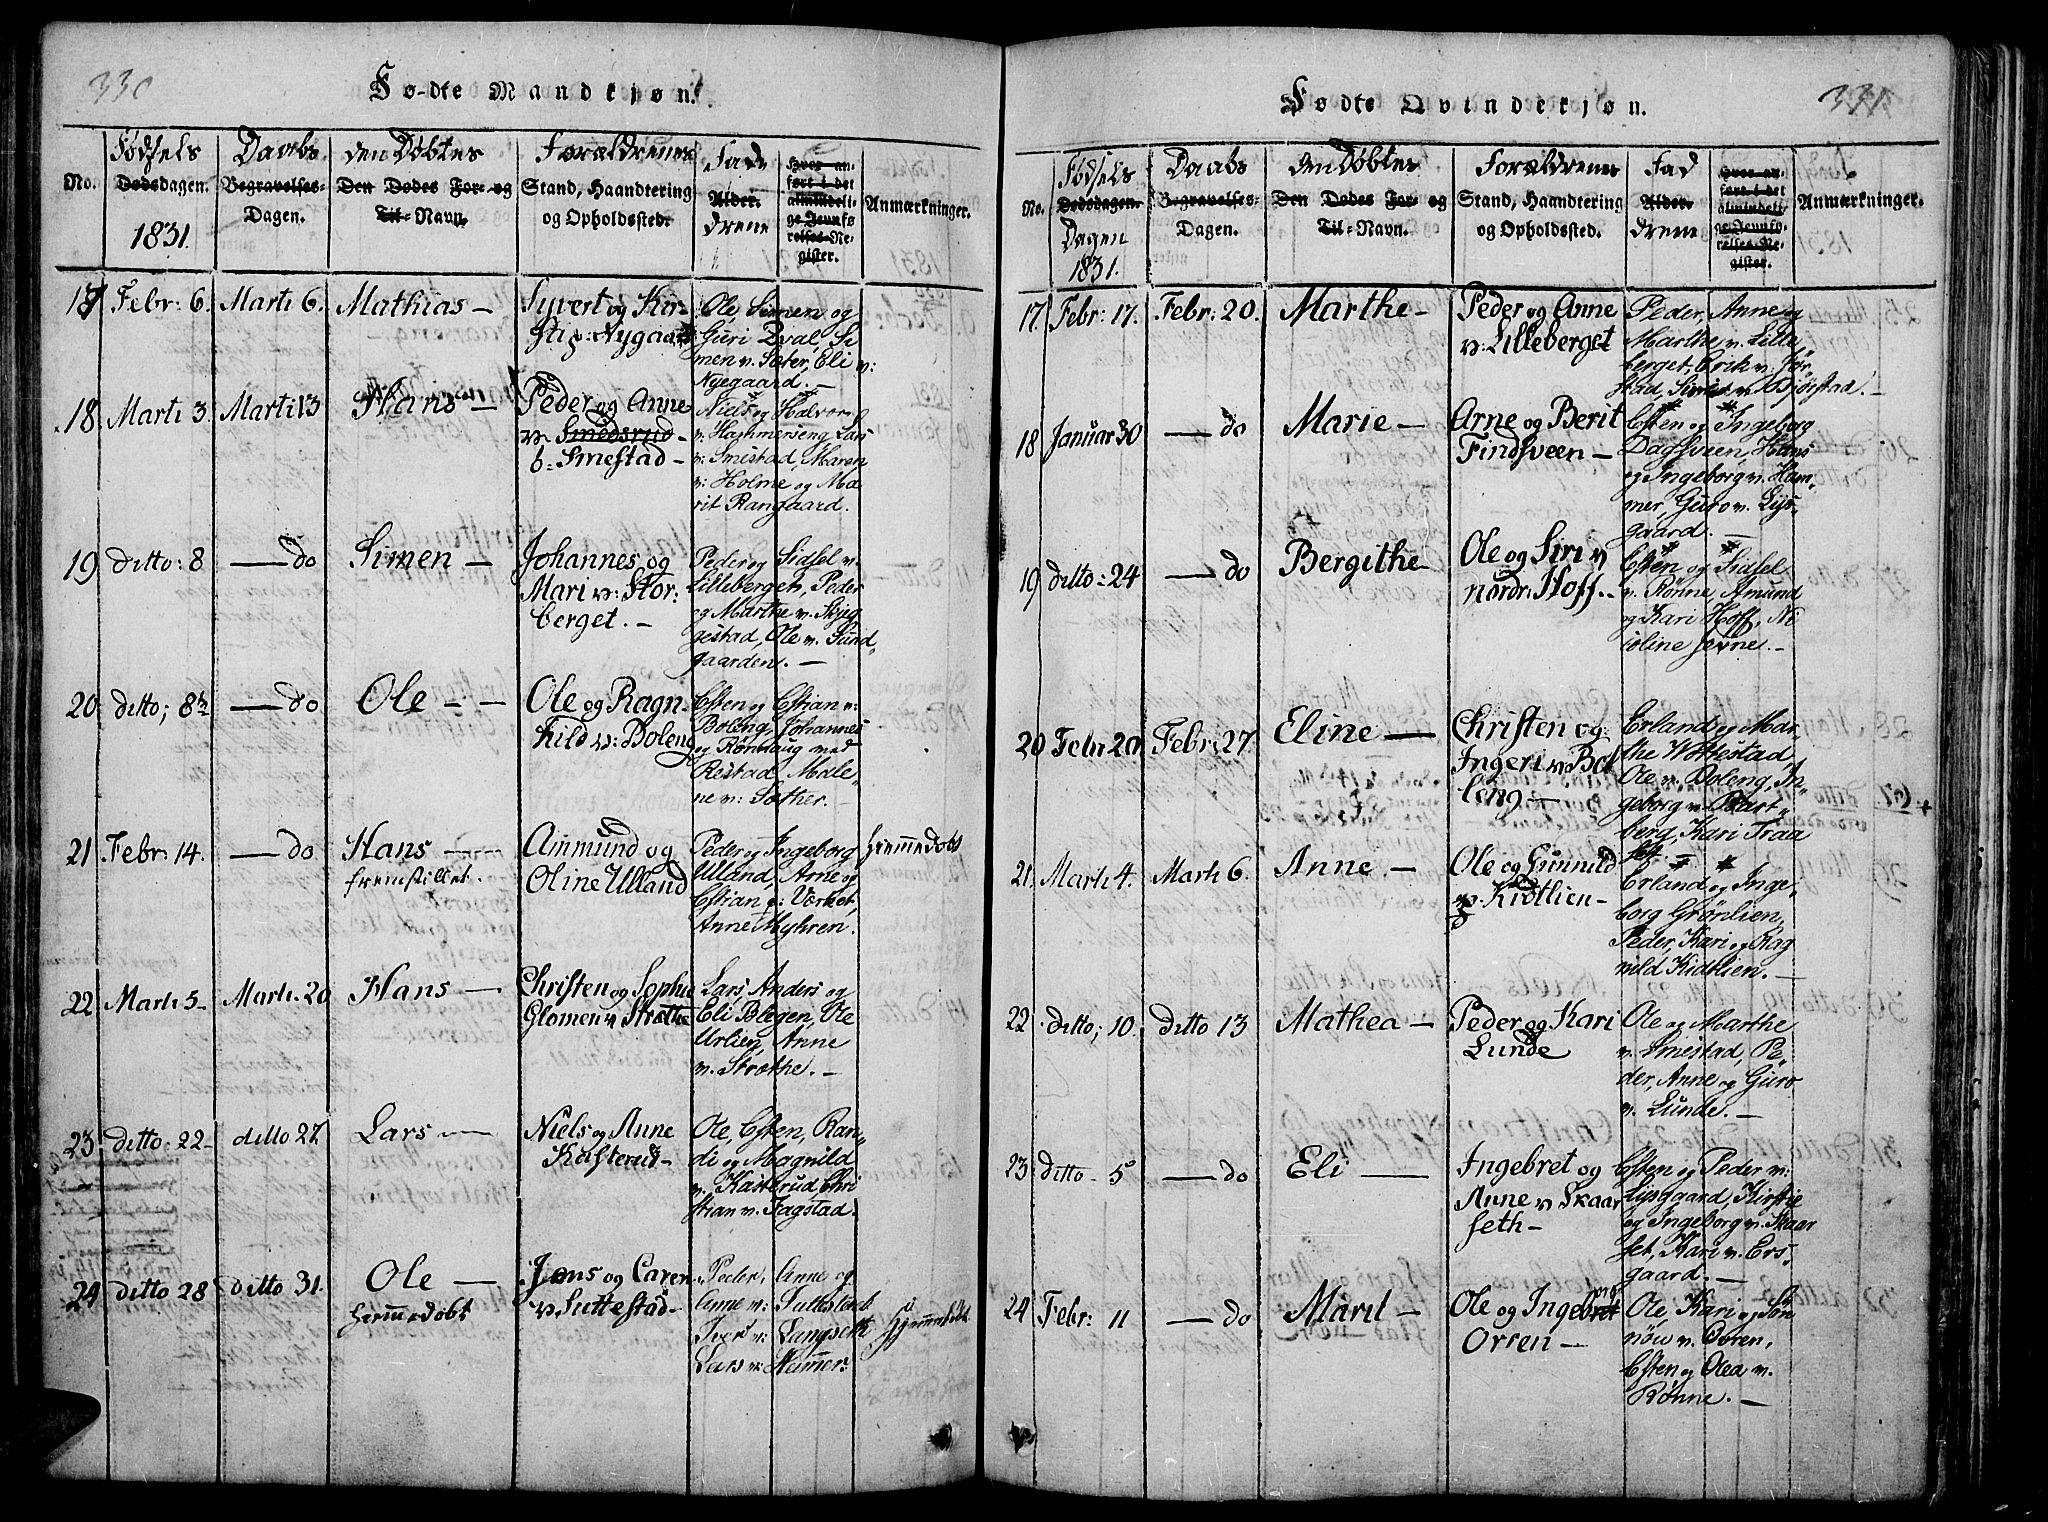 330
Fødte Mandkjøn.
No.
Fødsels
Dødsdagen.
1831.
Daabs
Begravelses-
Dagen.
den Døbtes
Den Dødes For- og
Til-Navn.
Forældrenes
Stand, Haandtering
og Opholdssted.
Fad
Alder.
drene
Hvor an-
ført i det
almindeli-
ge Jevnfø-
relses-Re-
gister.
Anmærkninger.
17 Febr: 6. Marti 6. Mathias —
Syvert og Kir-
Ole, Simen og
Guri Qval, Si
men v. Sæter, Eli v:
Nyegaard. —
18 Marti 3. Marti 13 Hans —
Peder og Anne
v. Smedsrud
b: Smestad —
Niels og Halvor
v. Hammerseng Lars
v: Smestad, Maren
v: Holme og Ma
rit Rangaard.
19 ditto: 8 — do Simen —
Johannes og
Mari v: Stor:
berget. —
Peder og Sidsel v.
Lilleberget, Peder
og Marthe v. Skjeg
gestad, Ole v. Sund
gaarden. —
20 ditto; 8 — do Ole — —
Ole og Ragn-
hild v: Boleng
Esten og Estian v:
Boleng Johannes
og Rønnaug med
Restad, Male-
ne v: Sæther. —
21 Febr: 14. — do Hans —
fremstillet.
Ammund og
Oline Ulland
Peder og Ingeborg
Ulland, Arne og
Estian v: Værket,
Anne Myhren.
hjemmedøbt
22 Marti 5 — Marti. 20 Hans —
Christen og Sophie
Glomen v Stræthe
Lars, Anders og
Eli Blegen, Ole
Urlien, Anne
v. Stræthe. —
23 ditto: 22 — ditto 27. Lars —
Niels og Anne
Kasterud —
Ole, Esten, Ran-
di og Magnild
v. Kasterud Chri
stian v. Fagstad.
24 ditto 28 ditto 31. Ole —
hjemmedøbt
Jens og Caren
v. Suttestad —
Peder, Anne og
Anne v: Suttestad
Iver v: Langseth
Lars v: Hammer:
331
Fødte Qvindekjøn.
No.
Fødsels
Dødsdagen.
Dagen
1831.
Daabs
Begravelses-
Dagen.
den Døbtes
Den Dødes For- og
Til-Navn.
Forældrenes
Stand, Haandtering
og Opholdssted.
Fad
Alder.
drene
Hvor an-
ført i det
almindeli-
ge Jevnfø-
relses-Re-
gister.
Anmærkninger.
17. Febr: 17. Febr: 20. Marthe —
Peder og Anne
v: Lilleberget
Peder, Anne og
Marthe v. Lille
berget, Erik v: Jør
stad, Simen v. Bjørstad. —
18 Januar 30 — do Marie —
Arne og Berit
Findsveen —
Esten og Ingeborg
Dagsveen, Hans
og Ingeborg v. Ham-
mer, Guro v. Lys-
gaard. —
19 ditto: 24 — do Bergithe
Ole og Siri v
nordr: Hoff. —
Esten og Sidsel
v. Rønne, Amund
og Kari Hoff, Ni
coline Jevne. —
20 Febr: 20. Febr: 27. Eline —
Christen og
Ingeri v Bo
leng —
Erland og Mar-
the Wottestad,
Ole v. Boleng, In-
geborg v. Bart-
berg, Kari Traa
set. —
21. Marti 4. Marti 6. Anne. —
Ole og Gunnild
v. Kidtlien —
Erland og Inge-
borg Grønlien,
Peder, Kari og Rag
nild Kidtlien. —
22 ditto; 10. ditto 13 Mathea —
Peder og Kari
Lunde
Ole og Marthe
v. Smestad, Pe-
der, Anne og Guro
v. Lunde. —
23 ditto — 5 — do Eli —
Ingebret og
Anne v Skaar
seth —
Esten og Peder v:
Lysggaard, Kirstie
og Ingeborg v. Skaar
set, Kari v. Ers-
gaard. —
24 Febr: 11 — do Marit —
Ole og Ingeborg
Orren —
Ole, Kari og Søn
nøv v. Ovren,
Esten og Olea v.
Rønne. —